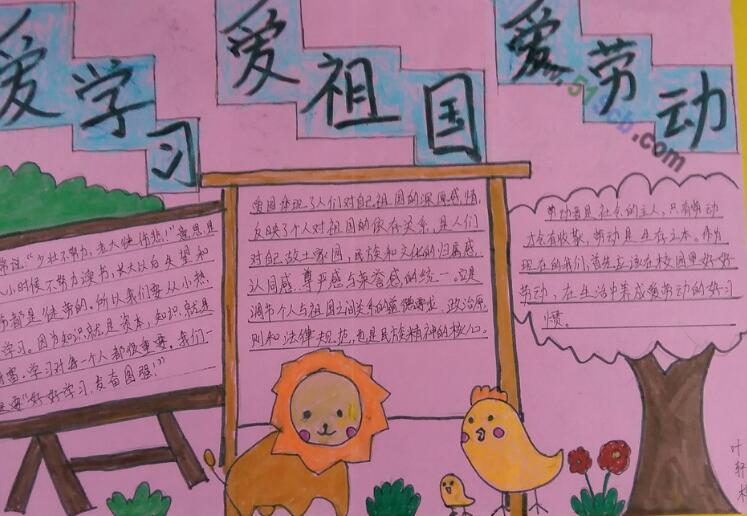 爱学习
爱祖国
爱劳动
www.51scb.com
常说:“少壮不努力,老大徒伤悲!”意思是
人小时候不努力读书,长大以后失望和
都是徒劳的。所以我们要从小热
学习。因为知识就是资本,知识就是
富。学习对每一个人都很重要。我们一
要“好好学习,发奋图强!”
爱国体现了人们对自己祖国的深厚感情,
反映了个人对祖国的依存关系,是人们
对自己故土家园,民族和文化的归属感,
认同感、尊严感与荣誉感的统一。它是
调节个人与祖国之间关系的道德要求、政治原
则和法律规范,也是民族精神的核心。
劳动者是社会的主人,只有劳动
才会有收获,劳动是生存之本。作为
现在的我们,首先应该在校园里好好
劳动,在生活中养成爱劳动的好习
惯。
叶
轩